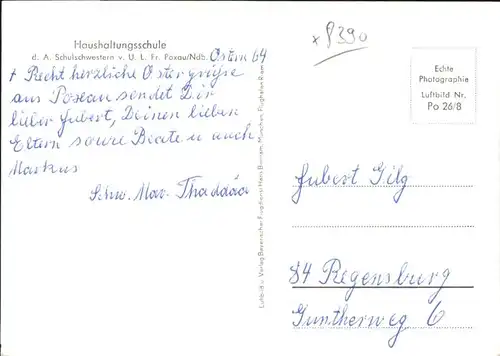 Haushaltungsschule
d. A. Schulschwestern v. U. L. Fr. Poxau/Ndb. Ostern 64
+ Recht herzliche Ostergrüße
aus Poxau sendet Dir
lieber Hubert, Deinen lieben
Eltern sowie Beate u. auch
Markus
Schw. Mar. Thaddäa
x 8390
Echte
Photographie
Luftbild Nr.
Po 26/8
Luftbild u. Verlag Bayerischer Flugdienst Hans Bertram, München, Flughafen Riem
Hubert Gilg
84 Regensburg
Guntherweg 6